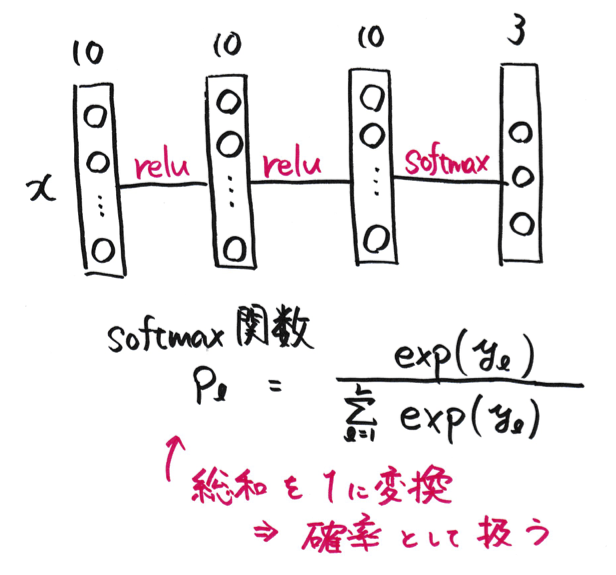 10 10 10 3
x relu relu softmax
softmax 関数
Pℓ = exp(yℓ) / Σ_{ℓ=1}^{L} exp(yℓ)
↑ 総和を1に変換
⇒ 確率として扱う